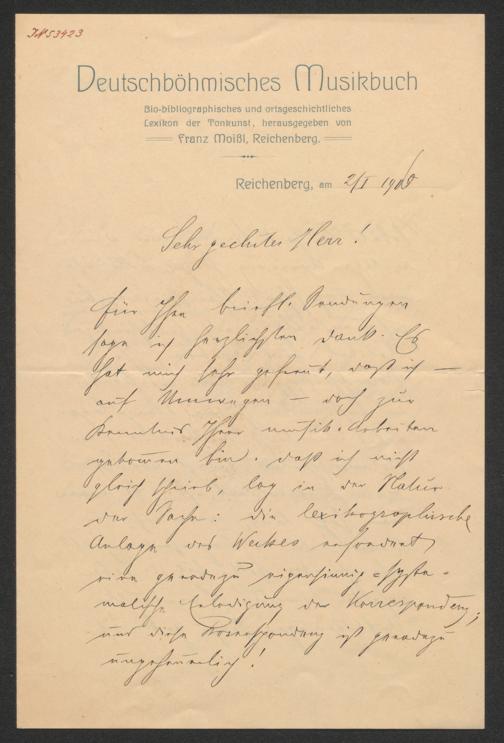 IN 53423
Deutschböhmisches Musikbuch
Bio-bibliographisches und ortsgeschichtliches
Lexikon der Tonkunst, herausgegeben von
Franz Moißl, Reichenberg.
Reichenberg, am 2/I 1908
Sehr geehrter Herr!
Für Ihre briefl. Sendungen
sage ich herzlichsten Dank. Es
hat mich sehr gefreut, daß ich —
auf Umwegen — doch zur
Kenntnis Ihrer musik. Arbeiten
gekommen bin. Daß ich nicht
gleich schrieb, lag in der Natur
der Sache: die lexikographische
Anlage des Werkes erfordert
eine geradezu eigensinnig-syste-
matische Erledigung der Korrespondenz,
und diese Korrespondenz ist geradezu
ungeheuerlich!